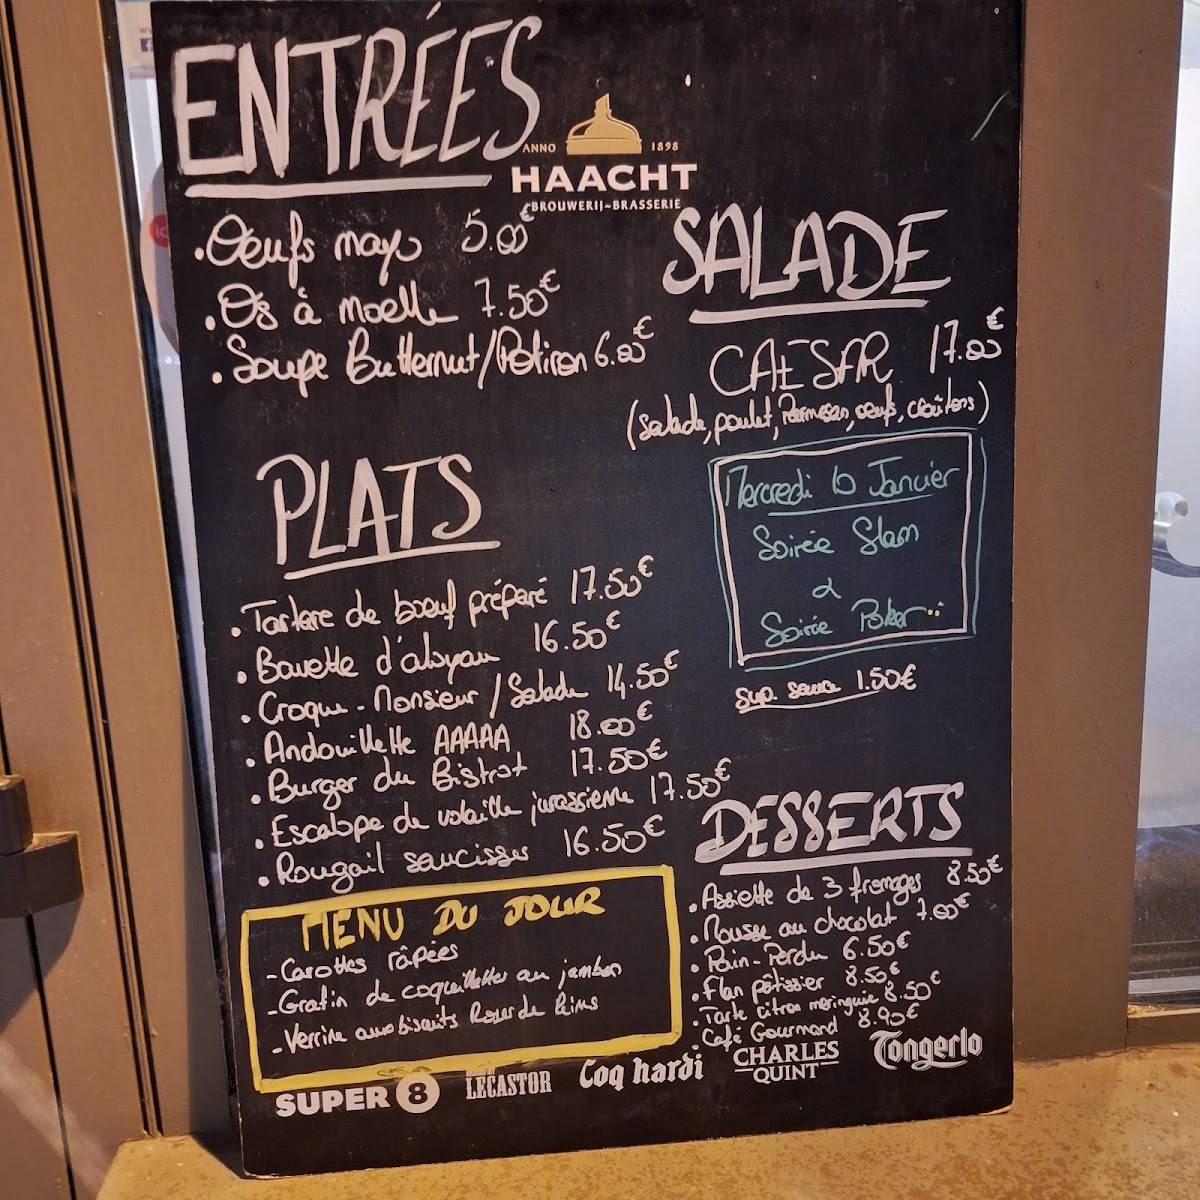 ENTRÉES
ANNO 1898
HAACHT
BROUWERIJ-BRASSERIE
. Oeufs mayo 5.00€
. Os à moelle 7.50€
. Soupe Butternut/Potiron 6.00€
SALADE
CAESAR 17.00€
(salade, poulet, Parmesan, oeufs, croûtons)
Mercredi 10 Janvier
Soirée Slam
&
Soirée Poker
Sup. sauce 1.50€
PLATS
. Tartare de boeuf préparé 17.50€
. Bavette d'aloyau 16.50€
. Croque-Monsieur / Salade 14.50€
. Andouillette AAAAA 18.00€
. Burger du Bistrot 17.50€
. Escalope de volaille jurassienne 17.50€
. Rougail saucisses 16.50€
DESSERTS
. Assiette de 3 fromages 8.50€
. Mousse au chocolat 7.00€
. Pain-Perdu 6.50€
. Flan pâtissier 8.50€
. Tarte citron meringuée 8.50€
. Café Gourmand 8.90€
MENU DU JOUR
- Carottes râpées
- Gratin de coquillettes au jambon
- Verrine aux biscuits Roses de Reims
SUPER 8
LECASTOR
Coq hardi
CHARLES
QUINT
Tongerlo